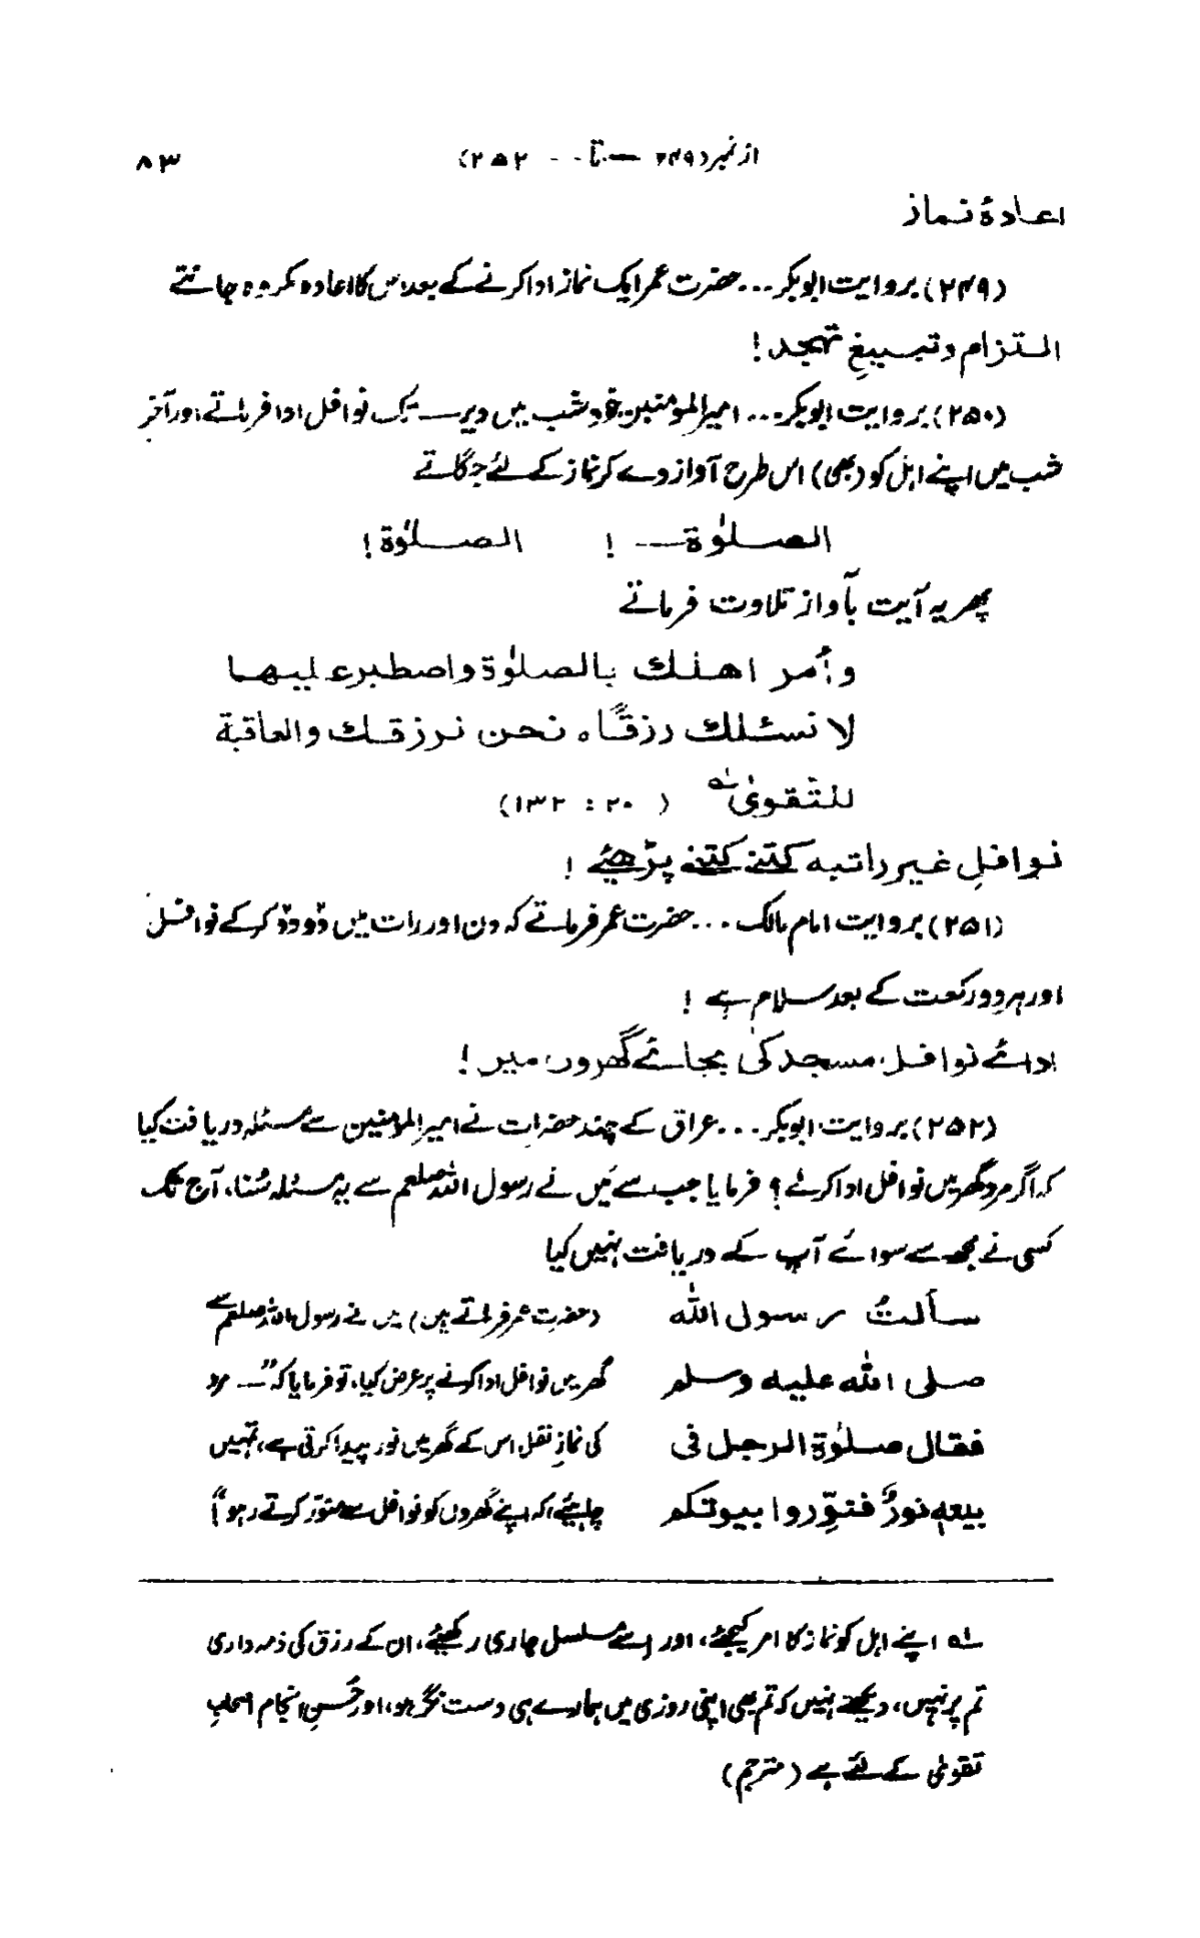 از نمبر (۲۴۹ — تا - - ۲۵۲) ۸۳
اعادۂ نماز
(۲۴۹) بروایت ابوبکر... حضرت عمر ایک نماز ادا کرنے کے بعد اس کا اعادہ مکروہ جانتے
التزام و تبلیغِ تہجد !
(۲۵۰) بروایت ابوبکر... امیر المومنین خود شب میں دیر تک نوافل ادا فرماتے اور آخر
شب میں اپنے اہل کو (بھی) اس طرح آواز دے کر نماز کے لئے جگاتے
الصلوٰۃ — ! الصلوٰۃ !
پھر یہ آیت بآواز تلاوت فرماتے
وأمر اھلک بالصلوٰۃ واصطبر علیھا
لا نسئلک رزقاً ہ نحن نرزقک والعاقبۃ
للتقویٰ لہ ( ۲۰ : ۱۳۲)
نوافلِ غیر راتبہ کتنے کتنے پڑھیئے !
(۲۵۱) بروایت امام مالک... حضرت عمر فرماتے کہ دن اور رات میں دو دو کر کے نوافل
اور ہر دو رکعت کے بعد سلام ہے !
ادائے نوافل، مسجد کی بجائے گھروں میں !
(۲۵۲) بروایت ابوبکر... عراق کے چند حضرات نے امیر المومنین سے مسئلہ دریافت کیا
کہ اگر مرد گھر میں نوافل ادا کرلے ؟ فرمایا جب سے میں نے رسول اللہ صلعم سے یہ مسئلہ سُنا، آج تک
کسی نے مجھ سے سوائے آپ کے دریافت نہیں کیا
سألتُ رسول اللہ (حضرت عمر فرماتے ہیں) میں نے رسول اللہ صلعم سے
صلی اللہ علیہ وسلم گھر میں نوافل ادا کرنے پر عرض کیا، تو فرمایا کہ "— مرد
فقال صلوٰۃ الرجل فی کی نماز نفل اس کے گھر میں نور پیدا کرتی ہے، تمہیں
بیتہ نورٌ فنوِّروا بیوتکم چاہیئے کہ اپنے گھروں کو نوافل سے منوّر کرتے رہو"
لہ اپنے اہل کو نماز کا امر کیجئے، اور اسے مسلسل جاری رکھیئے، ان کے رزق کی ذمہ داری
تم پر نہیں، دیکھتے نہیں کہ تم بھی اپنی روزی میں ہمارے ہی دست نگر ہو، اور حُسنِ انجام اصحابِ
تقویٰ کے لئے ہے (مترجم)